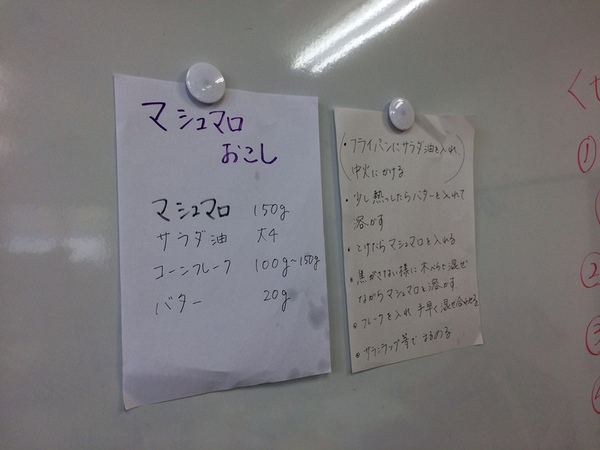 マシュマロ
おこし
マシュマロ 150g
サラダ油 大4
コーンフレーク 100g~150g
バター 20g
・フライパンにサラダ油を入れ、
中火にかける
・少し熱っしたらバターを入れて
溶かす
・とけたらマシュマロを入れる
・焦がさない様に木べらで混ぜ
ながらマシュマロを溶かす
・フレークを入れ手早く混ぜ合わせる
・サランラップ等でまるめる
<
①
②
③